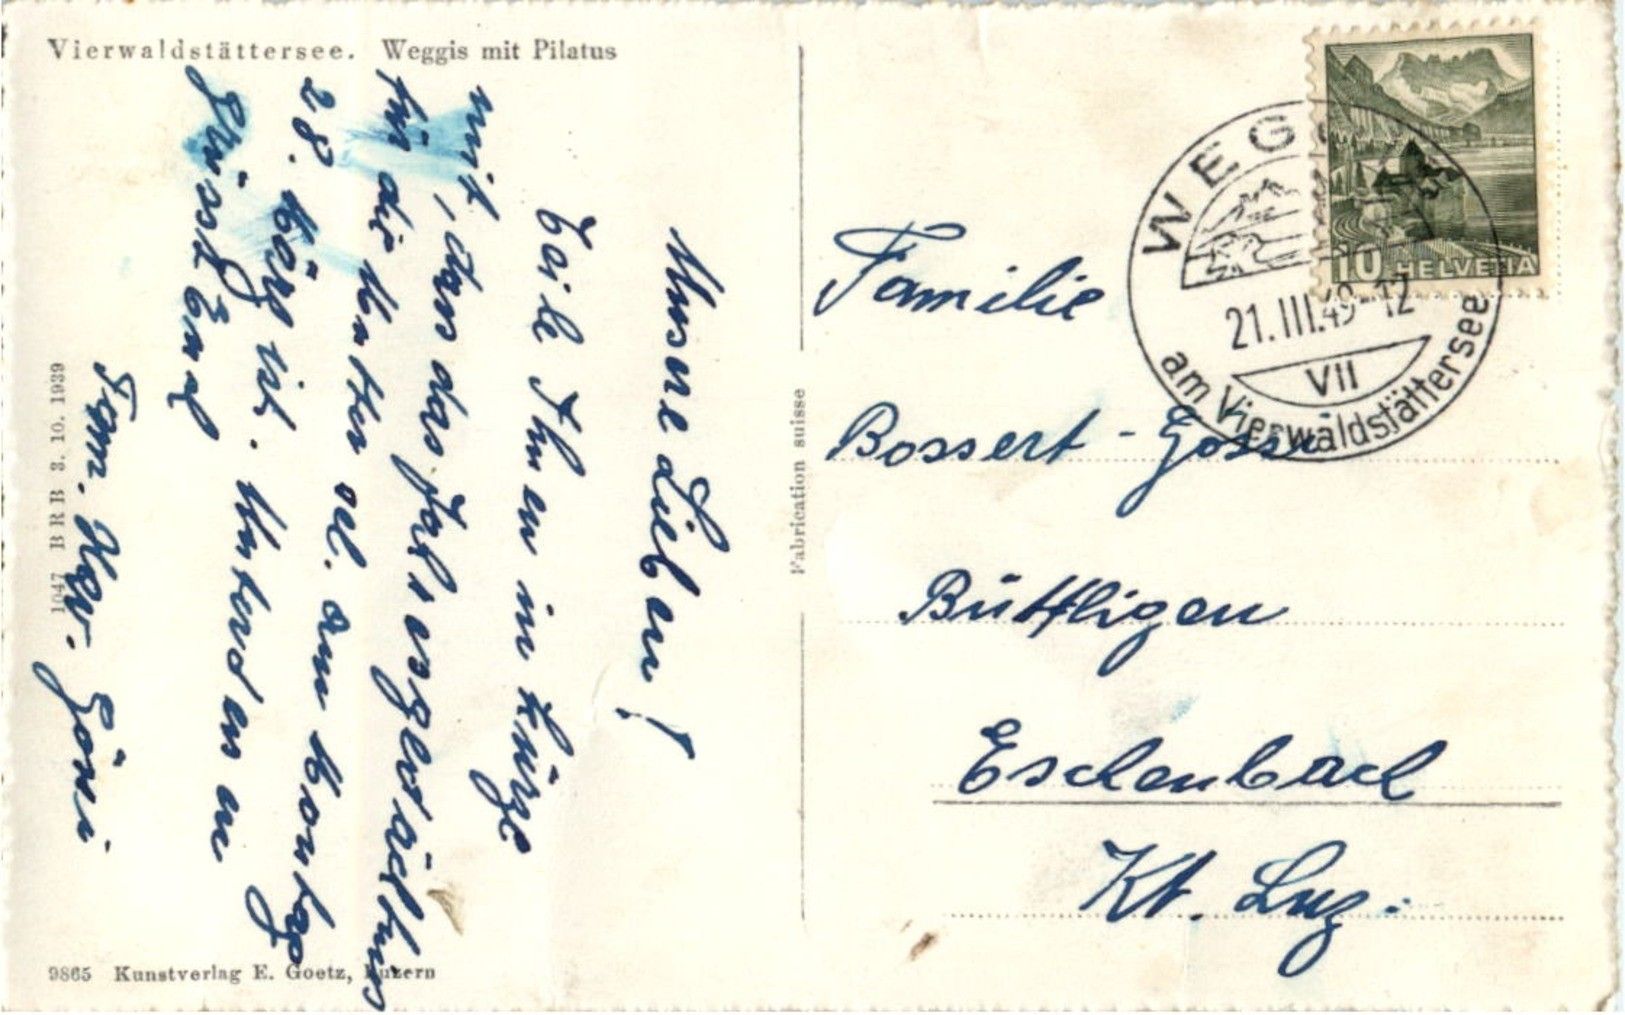 Vierwaldstättersee. Weggis mit Pilatus
Unsere Lieben!
Teile Ihnen in Kürze
mit, dass das Jahresgedächtnis
für die Mutter sel. am Montag
28. März ist. Unterdessen
grüsst Euch
Fam.
1047 BRB 3. 10. 1939
9865 Kunstverlag E. Goetz, Luzern
Fabrication suisse
WEGGIS
21.III.49-12
VII
am Vierwaldstättersee
10 HELVETIA
Familie
Bossert-
Eschenbach
Kt. Luz.